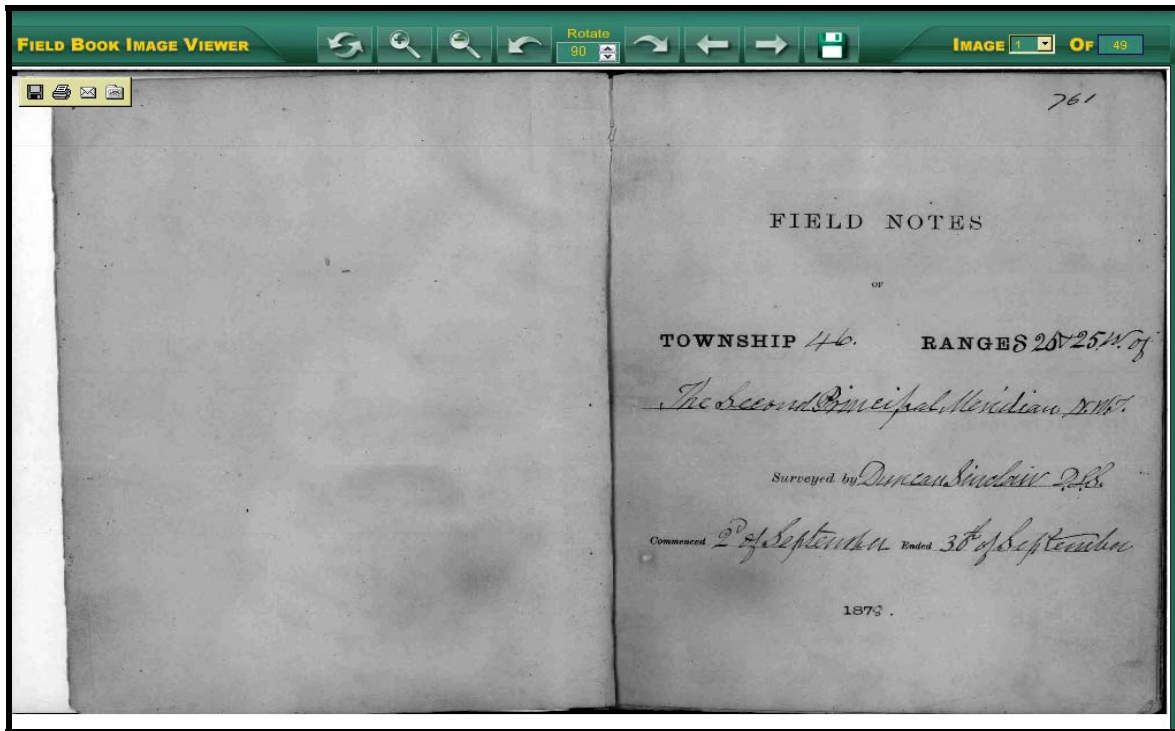 FIELD BOOK IMAGE VIEWER
Rotate
90
IMAGE 1 OF 49
761
FIELD NOTES
OF
TOWNSHIP 46. RANGES & 25 W. of
The Second Principal Meridian N.W.T.
Surveyed by Duncan Sinclair D.L.S.
Commenced 2d of September Ended 30th of September
187